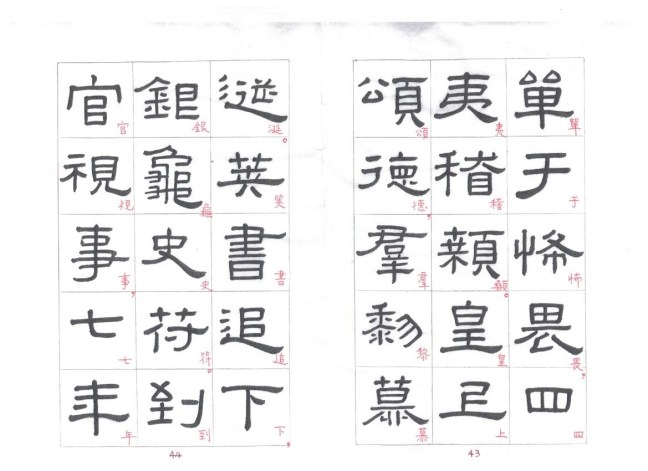 單于怖畏四
夷稽顙皇上
頌德羣黎慕
筴書追下
銀龜史符到
官視事七年
單于怖畏，四
夷稽顙。皇上
頌德，羣黎慕
筴書追下，
銀龜史符。到
官視事，七年
43
44